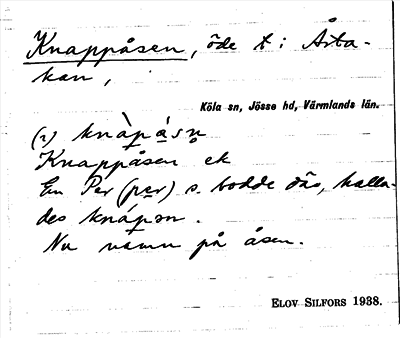 Knappåsen, öde t: Årta-
kan,
Köla sn, Jösse hd, Värmlands län.
(2) knàpåsn̥
Knappåsen ek
En Per (per) s. bodde där, kalla-
des knápən.
Nu namn på åsen.
ELOV SILFORS 1938.